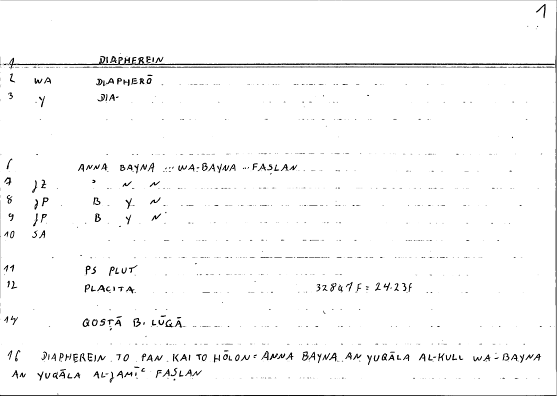 1
1 DIAPHEREIN
2 WA DIAPHERŌ
3 Y DIA-
6 ANNA BAYNA ... WA-BAYNA ... FAṢLAN
7 JZ " N N
8 JP B Y N
9 JP B Y N
10 SA
11 PS PLUT
12 PLACITA 328a7f = 24.23f
14 QOSṬĀ B. LŪQĀ
16 DIAPHEREIN TO PAN KAI TO HŌLON = ANNA BAYNA AN YUQĀLA AL-KULL WA-BAYNA
AN YUQĀLA AL-JAMĪʿ FAṢLAN